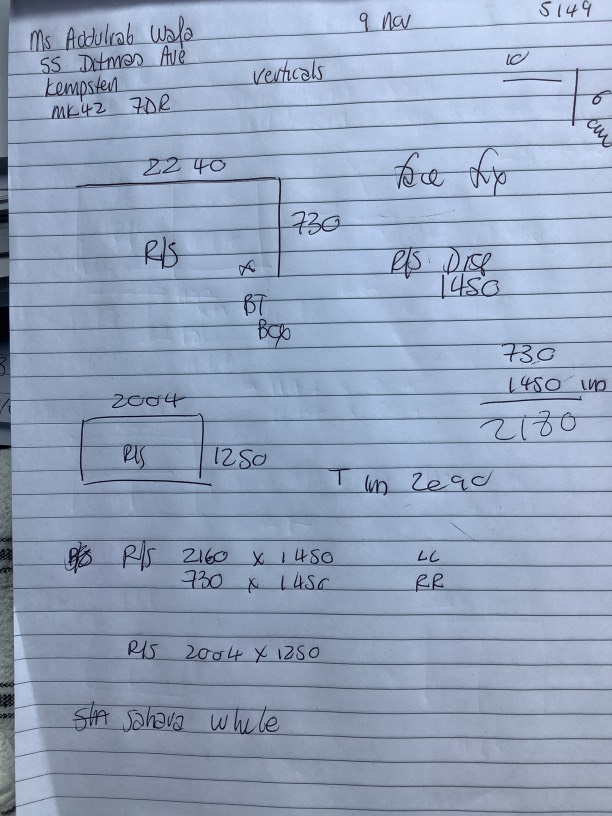 5149
9 Nov
Ms Addulrab Wafa
55 Ditmas Ave
Kempsten
MK42 7DR
verticals
10
6
cm
2240
730
R/S
x
BT
Box
face fix
R/S Disp
1450
730
1450
2180
2004
R/S
1250
T
R/S 2160 x 1450 LL
730 x 1450 RR
R/S 2004 x 1250
Sahara white